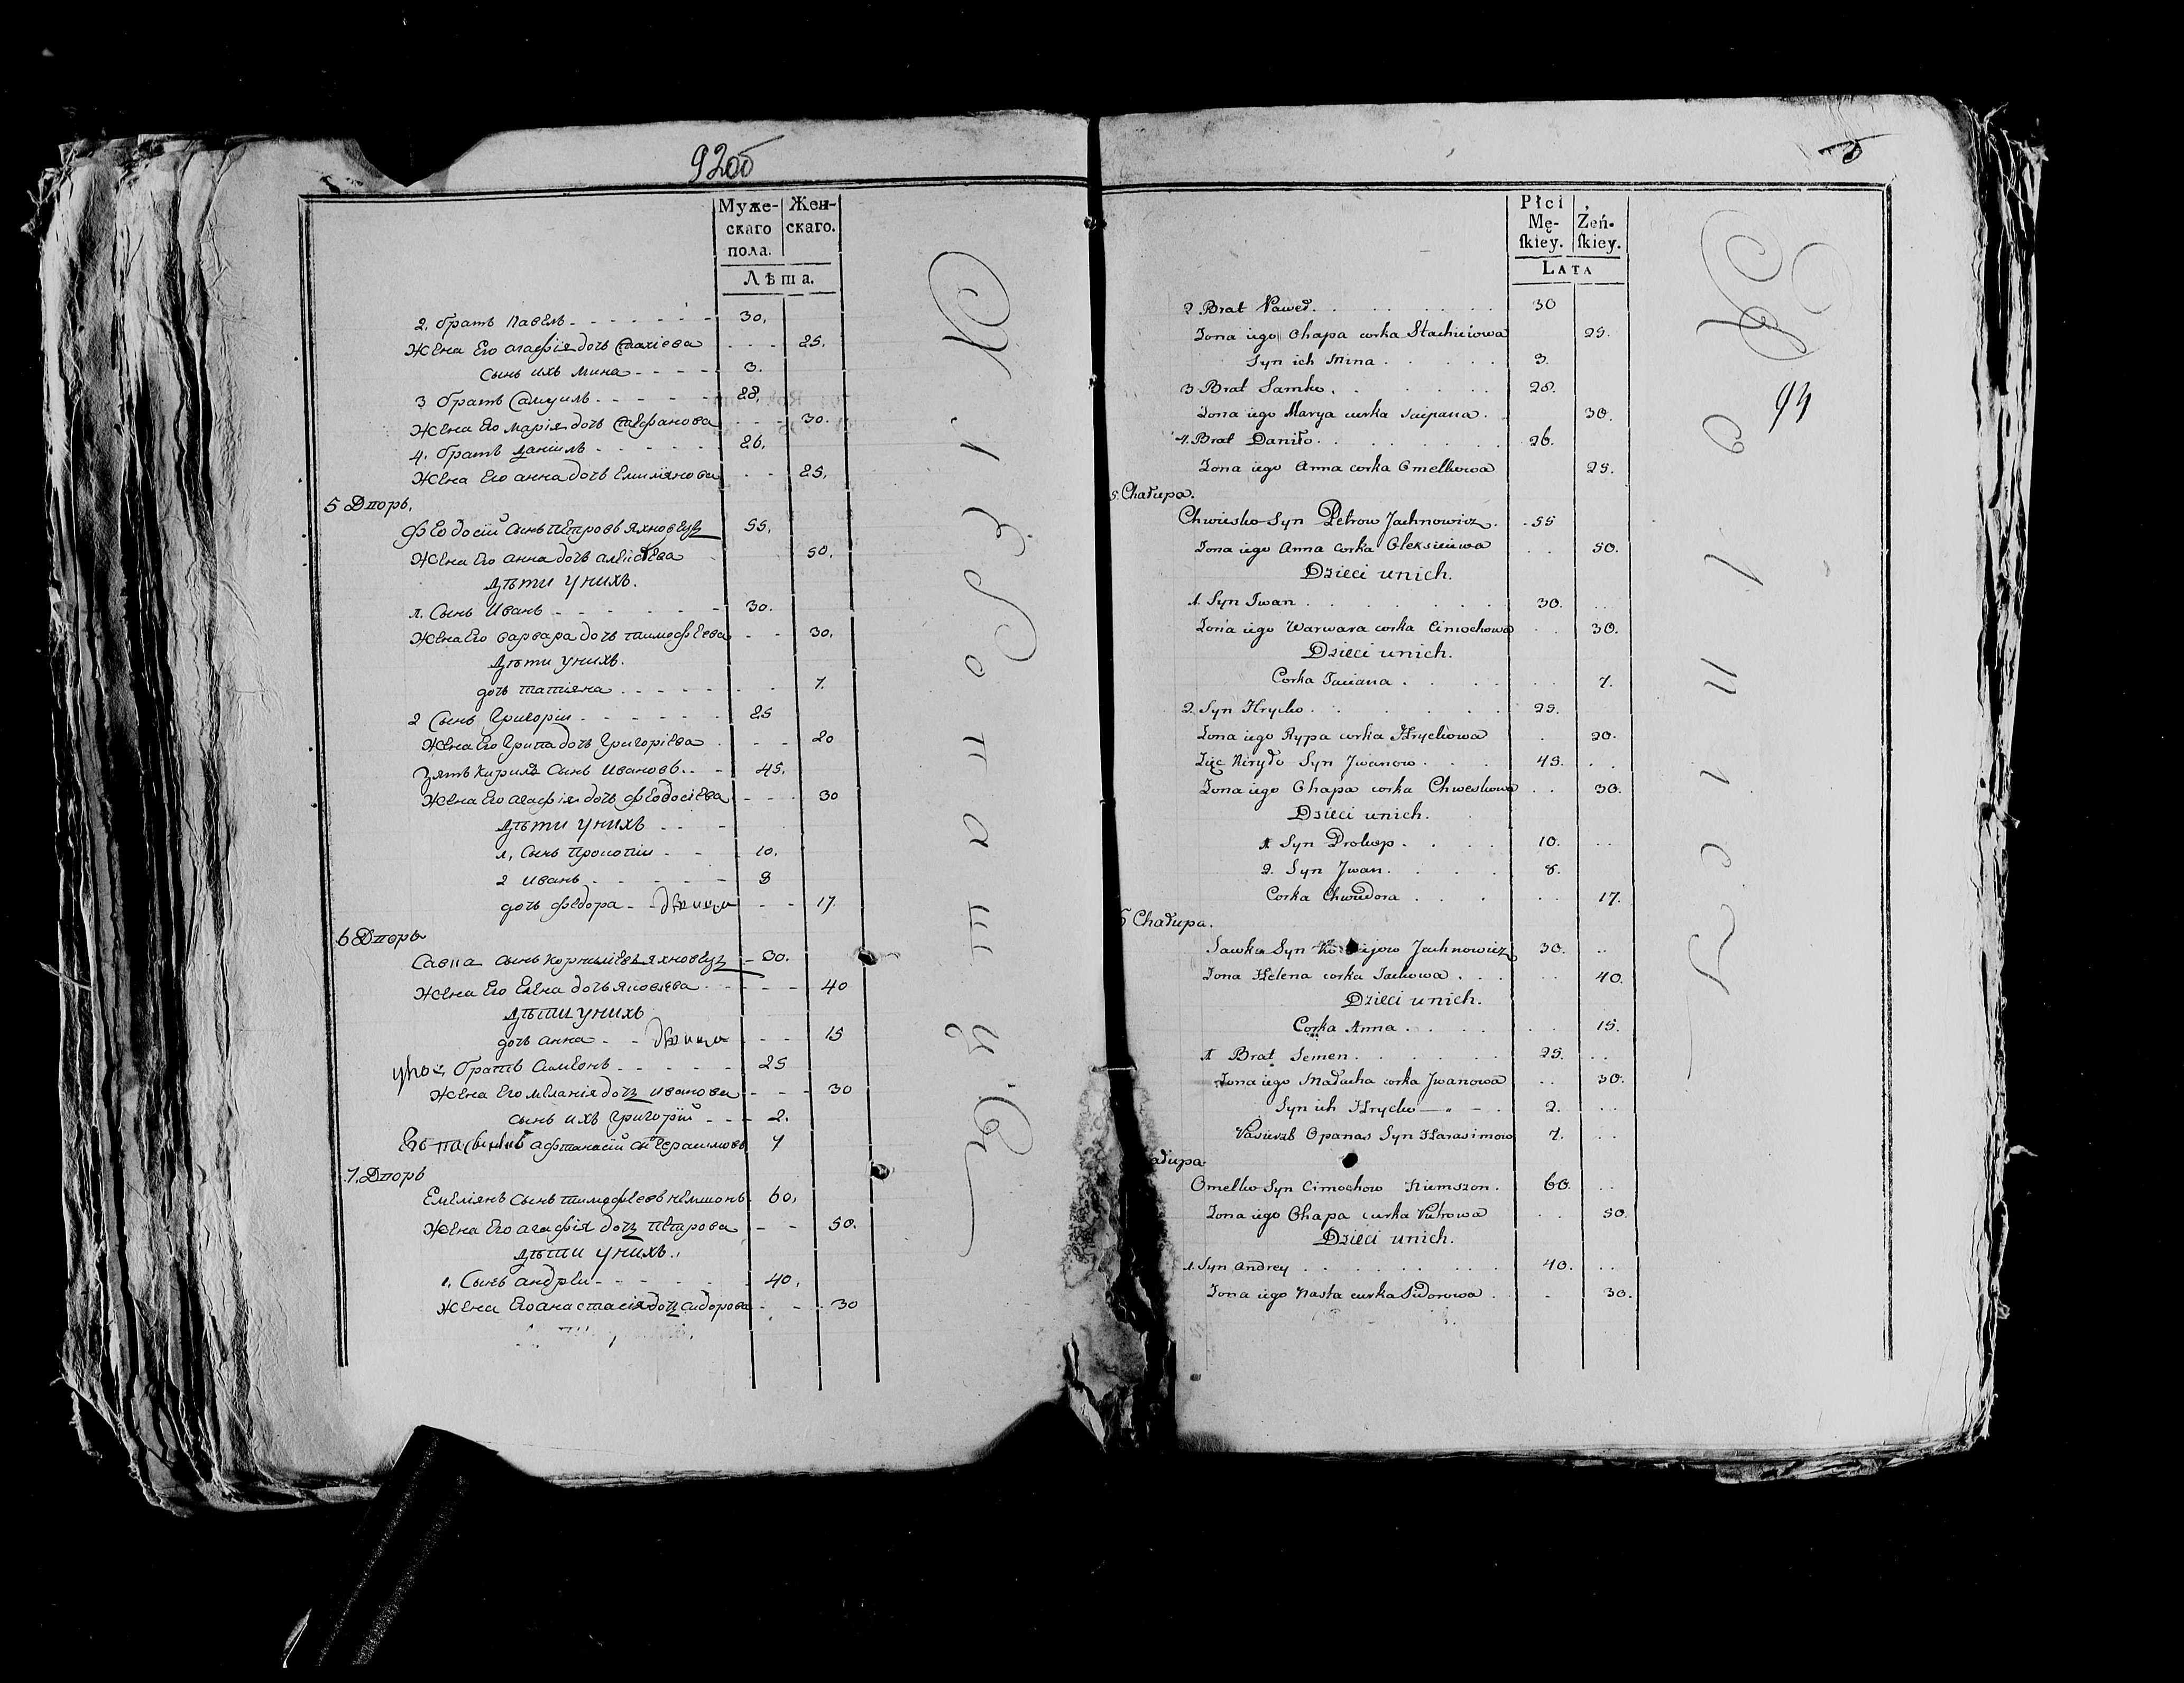 92об
Муже-
скаго
пола.
Жен-
скаго.
Лѣта.
2. братъ Павелъ 30.
жена его агафія дочь стахіева 25.
сынъ ихъ мина 3.
3 братъ Самуилъ 28.
жена его марія дочь стефанова 30.
4. братъ данілъ 26.
жена его анна дочь емиліянова 25.
5 Дворъ.
Феодосій сынъ петровъ яхновецъ 55.
жена его анна дочь алексѣева 50.
дѣти у нихъ.
1. Сынъ Иванъ 30.
жена его варвара дочь тимофеева 30.
дѣти у нихъ.
дочь татіяна 7.
2 Сынъ Григоріи 25
жена его Грипа дочь Григоріева 20
Зять Кирилъ Сынъ Ивановъ 45.
жена его агафія дочь феодосіева 30
дѣти у нихъ
1. Сынъ Прокопіи 10.
2 Иванъ 8
дочь федора 17
6 Дворъ
Савка сынъ корнылиевъ яхновецъ 30.
жена его елена дочь яковлева 40
дѣти у нихъ
дочь анна 15
братъ Симеонъ 25
жена его меланія дочъ иванова 30
сынъ ихъ Григорій 2.
афтанасій Герасимовъ 7
7. Дворъ
Емеліянъ сынъ тимофеевъ немшонъ 60.
жена его агафія дочъ петрова 50.
дѣти у нихъ.
1. Сынъ андреи 40.
жена его анастасія дочъ сидорова 30
Płci
Mę-
ſkiey.
Żeń-
ſkiey.
LATA
2 Brat Paweł. 30
Żona iego Ohapa corka Stachiiowa 25.
Syn ich Mina 3.
3 Brat Samko. 28.
Żona iego Marya curka Sciepana. 30.
4. Brat Daniło. 26.
Żona iego Anna corka Omelkowa 25.
5. Chałupa.
Chwiesko Syn Petrow Jachnowicz. 55
Żona iego Anna Corka Oleksieiewa 50.
Dzieci unich.
1 Syn Iwan 30.
Żona iego Warwara corka Cimochowa 30.
Dzieci unich.
Corka Taciana 7.
2. Syn Hrycko 25.
Żona iego Rypa curka Hryckowa 20.
Zięć Kiryło Syn Jwanow 45.
Żona iego Ohapa corka Chweskowa 30.
Dzieci unich.
1 Syn Prokop 10.
2. Syn Jwan. 8.
Corka Chwiedora 17.
6 Chałupa.
Sawka Syn Jachnowicz 30.
Żona Helena corka Jackowa 40.
Dzieci unich.
Corka Anna 15.
1 Brat Semen 25.
Żona iego Małacha corka Jwanowa 30.
Syn ich Hrycko 2.
Pasierzb Opanas Syn Harasimow 7.
ałupa
Omelko Syn Cimochow Niemszon. 60.
Żona iego Ohapa curka Piotrowa 50.
Dzieci unich.
1. Syn Andrey 40.
Żona iego Nasta curka Sidorowa 30.